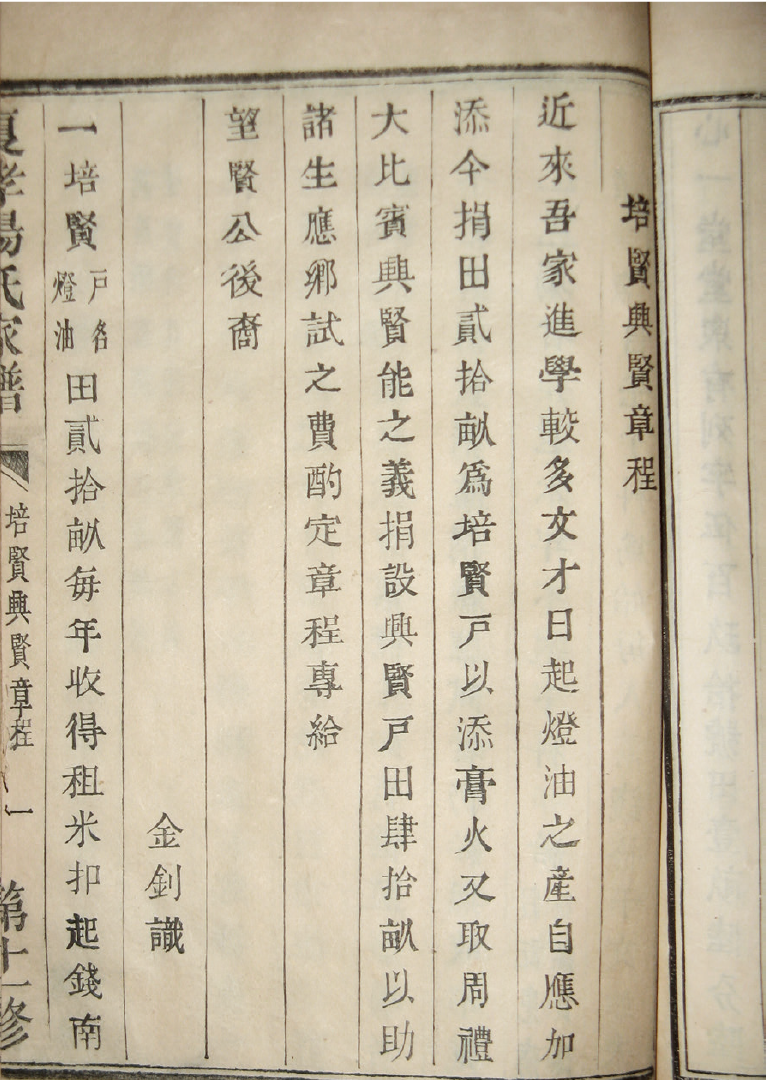 培賢興賢章程
近來吾家進學較多文才日起燈油之產自應加
添今捐田貳拾畝爲培賢戸以添膏火又取周禮
大比賓興賢能之義捐設興賢戸田肆拾畝以助
諸生應鄉試之費酌定章程專給
望賢公後裔
金釗識
一培賢戸名燈油田貳拾畝每年收得租米扣起錢南
孝楊氏家譜
培賢興賢章程
一
第十一修